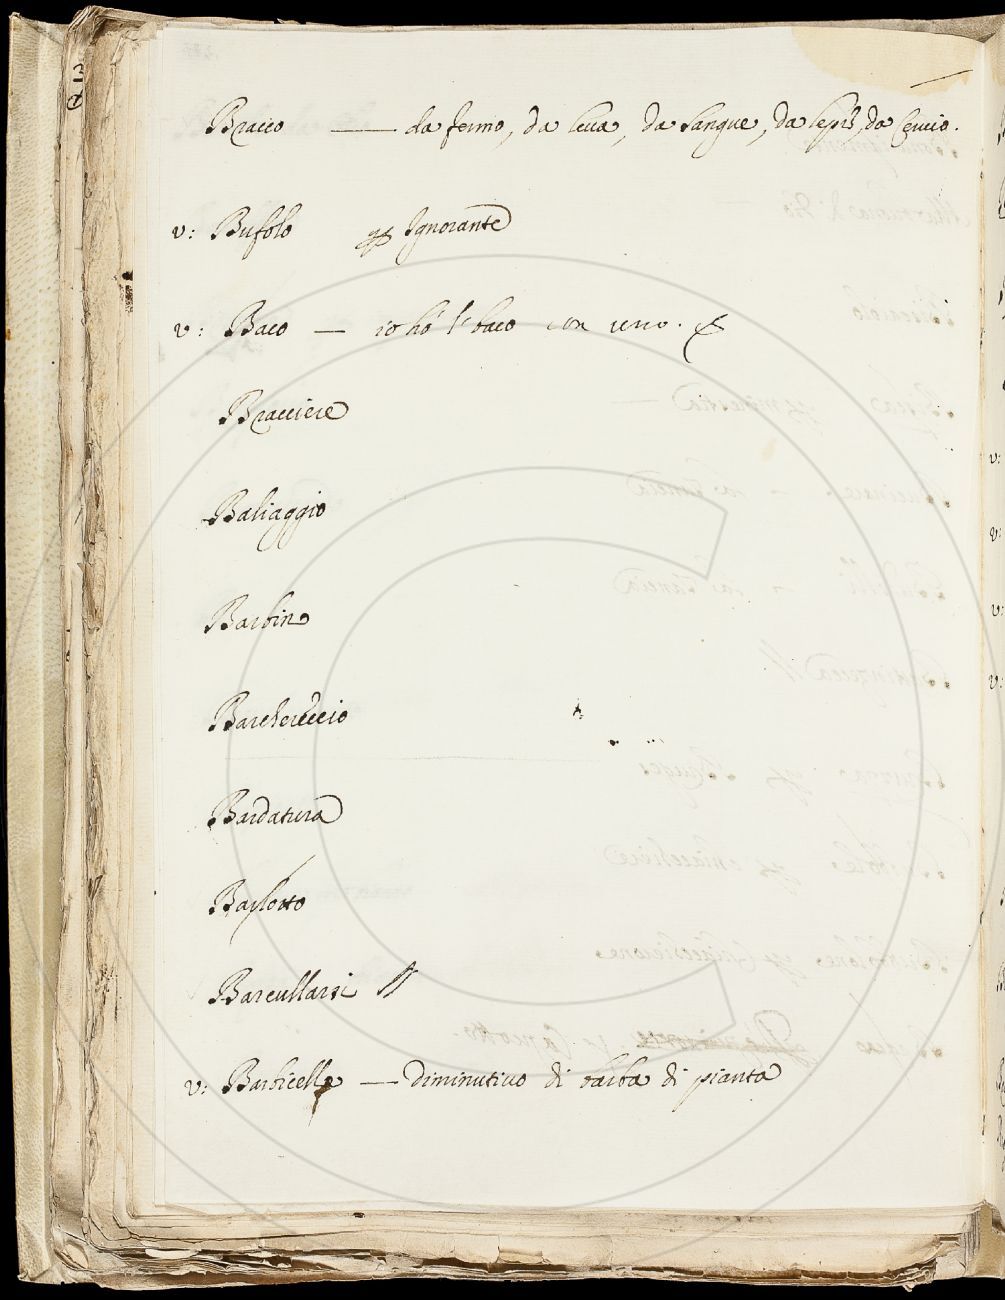 Bracco — da fermo, da leua, da sangue, da lepri, da
v: Bufolo p Ignorante
v: Baco — io hò il baco con uno.
Bracciere
Baliaggio
Barbino
Barchereccio
Bardatura
Barlotto
Barcullarsi
v: Barbicella — Diminutiuo di barba di pianta